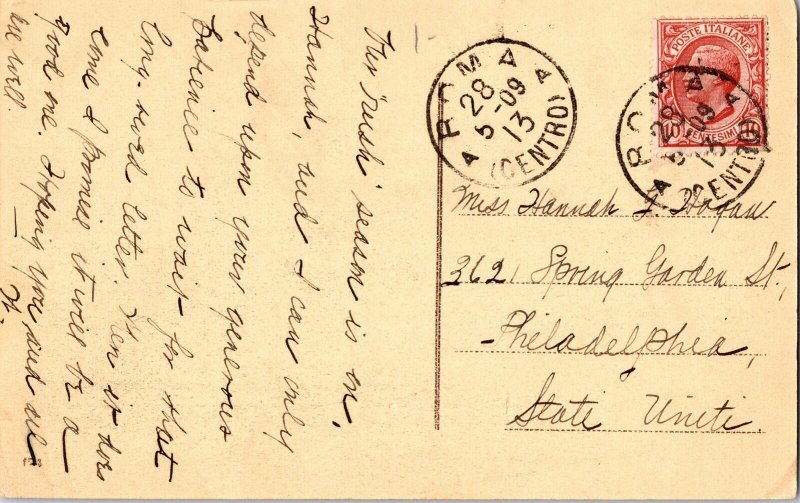 The "rush" season is on,
Hannah, and I can only
depend upon your generous
patience to wait for that
long-owed letter. When it does
come I promise it will be a
good one. Hoping you and all
are well.
H.
ROMA
28
5-09
13
(CENTRO)
POSTE ITALIANE
CENTESIMI 10
ROMA
28
5-09
13
(CENTRO)
Miss Hannah J. Hogan
3621 Spring Garden St.,
Philadelphia,
Stati Uniti.